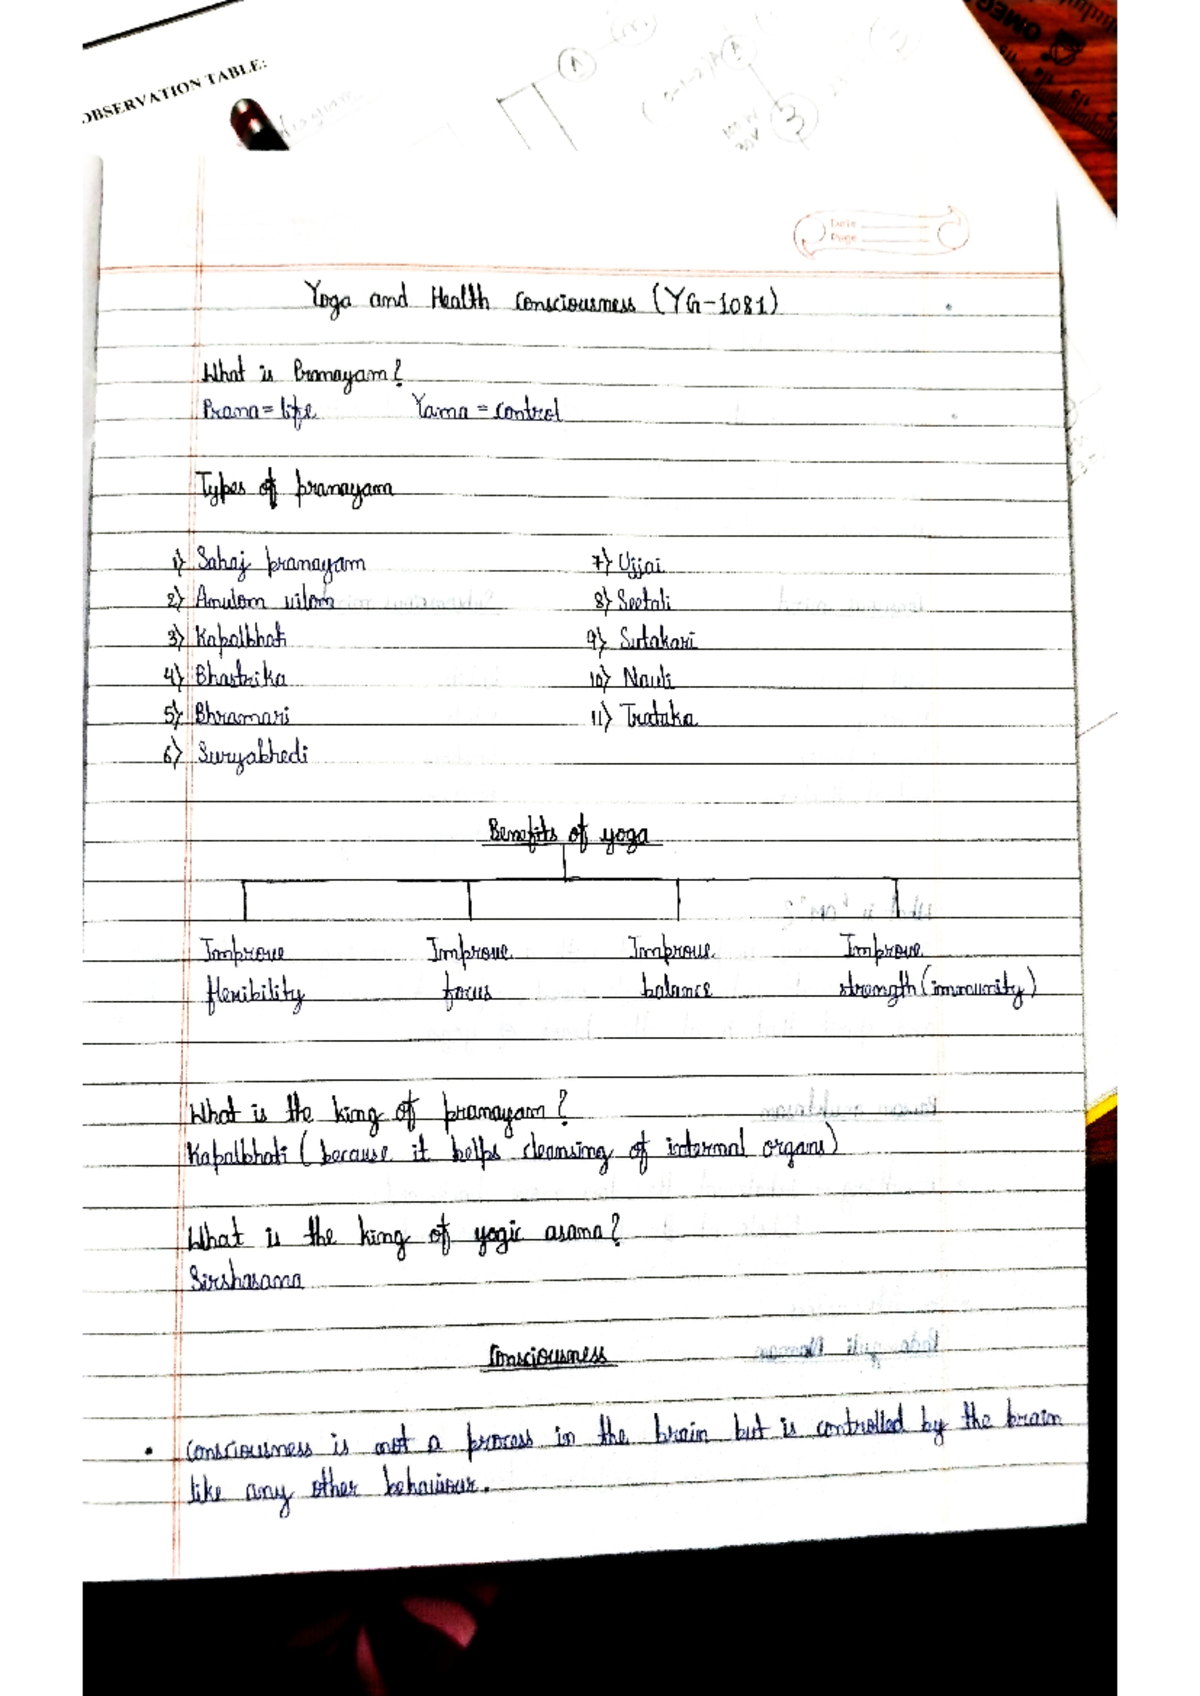 OBSERVATION TABLE:
Date
Page
Yoga and Health Consciousness (YG-1081)
What is Pranayam?
Prana = life Yama = control
Types of pranayam
1) Sahaj pranayam
2) Anulom vilom
3) Kapalbhati
4) Bhastrika
5) Bhramari
6) Suryabhedi
7) Ujjai
8) Seetali
9) Sitakari
10) Nauli
11) Trataka
Benefits of yoga
Improve flexibility
Improve focus
Improve balance
Improve strength (immunity)
What is the king of pranayam?
Kapalbhati (because it helps cleansing of internal organs)
What is the king of yogic asana?
Sirshasana
Consciousness
• Consciousness is not a process in the brain but is controlled by the brain
like any other behaviour.